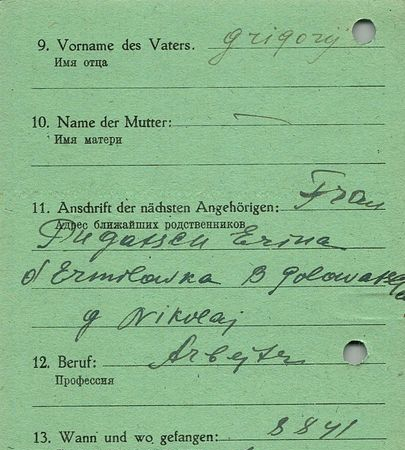 9. Vorname des Vaters. Grigorij
Имя отца
10. Name der Mutter: —
Имя матери
11. Anschrift der nächsten Angehörigen: Frau
Адрес ближайших родственников
Erina
d Ermilowka B
g Nikolaj
12. Beruf: Arbejter
Профессия
13. Wann und wo gefangen: 8 8 41